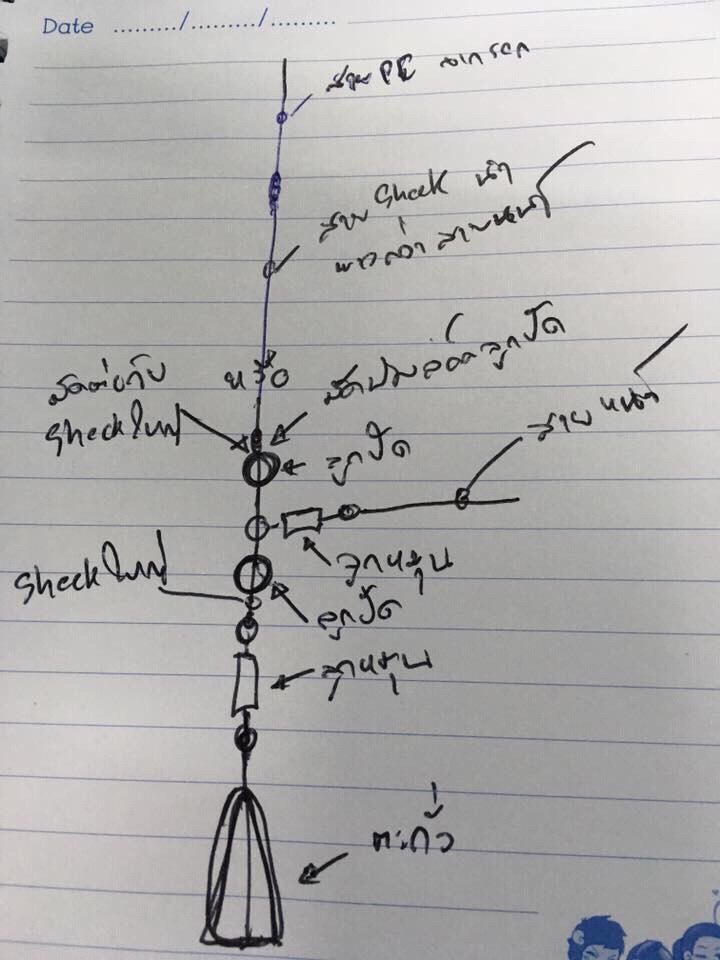 Date ........./........./.........
สาย PE จากรอก
สาย Shock นำ
ยาวกว่า สายหน้า
มัดต่อกับ
Shock ใบบน
หรือ
มัดปมล็อคลูกปัด
ลูกปัด
สายหน้า
ลูกหมุน
Shock
ลูกปัด
ลูกหมุน
ตะกั่ว